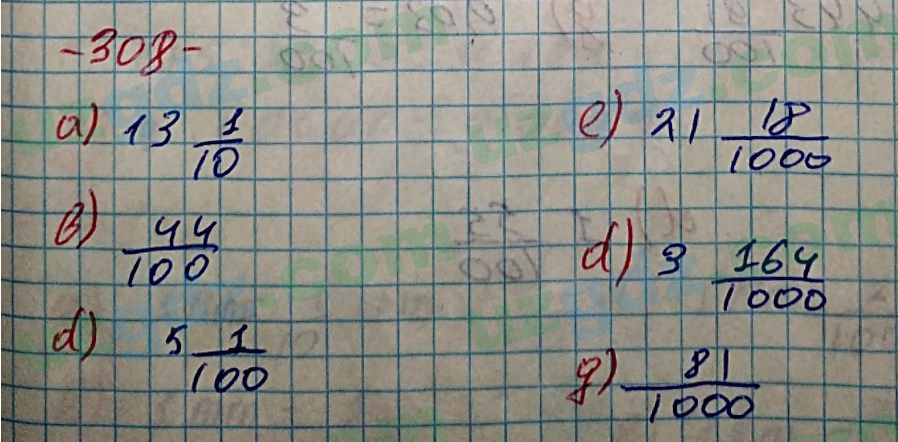 -308-
a) 13 1/10
b) 44/100
d) 5 1/100
e) 21 18/1000
d) 3 164/1000
g) 81/1000
uzgdz.com